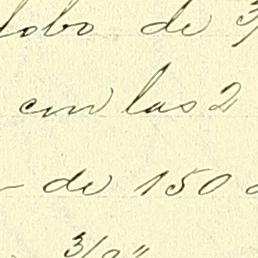 lobo de 3/
con las 2
de 150
3/8"